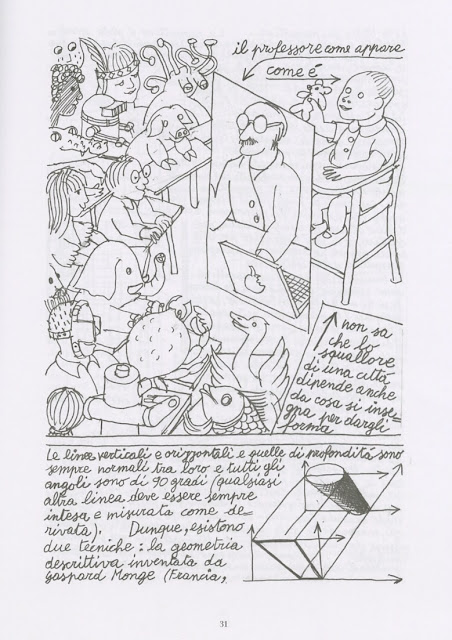 il professore come appare
come è
non sa
che lo
squallore
di una città
dipende anche
da cosa si inse-
gna per dargli
forma
Le linee verticali e orizzontali e quelle di profondità sono
sempre normali tra loro e tutti gli
angoli sono di 90 gradi (qualsiasi
altra linea deve essere sempre
intesa e misurata come de-
rivata). Dunque, esistono
due tecniche: la geometria
descrittiva inventata da
Gaspard Monge (Francia,
31